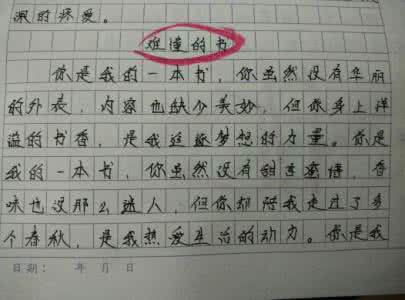 渊的深爱。
难懂的书
你是我的一本书，你虽然没有华丽
的外表，内容也缺少美妙，但你身上洋
溢的书香，是我追逐梦想的力量。你是
我的一本书，你虽然没有甜言蜜语，香
味也没那么迷人，但你却陪我走过了多
个春秋，是我热爱生活的动力。你是我
日期： 年 月 日